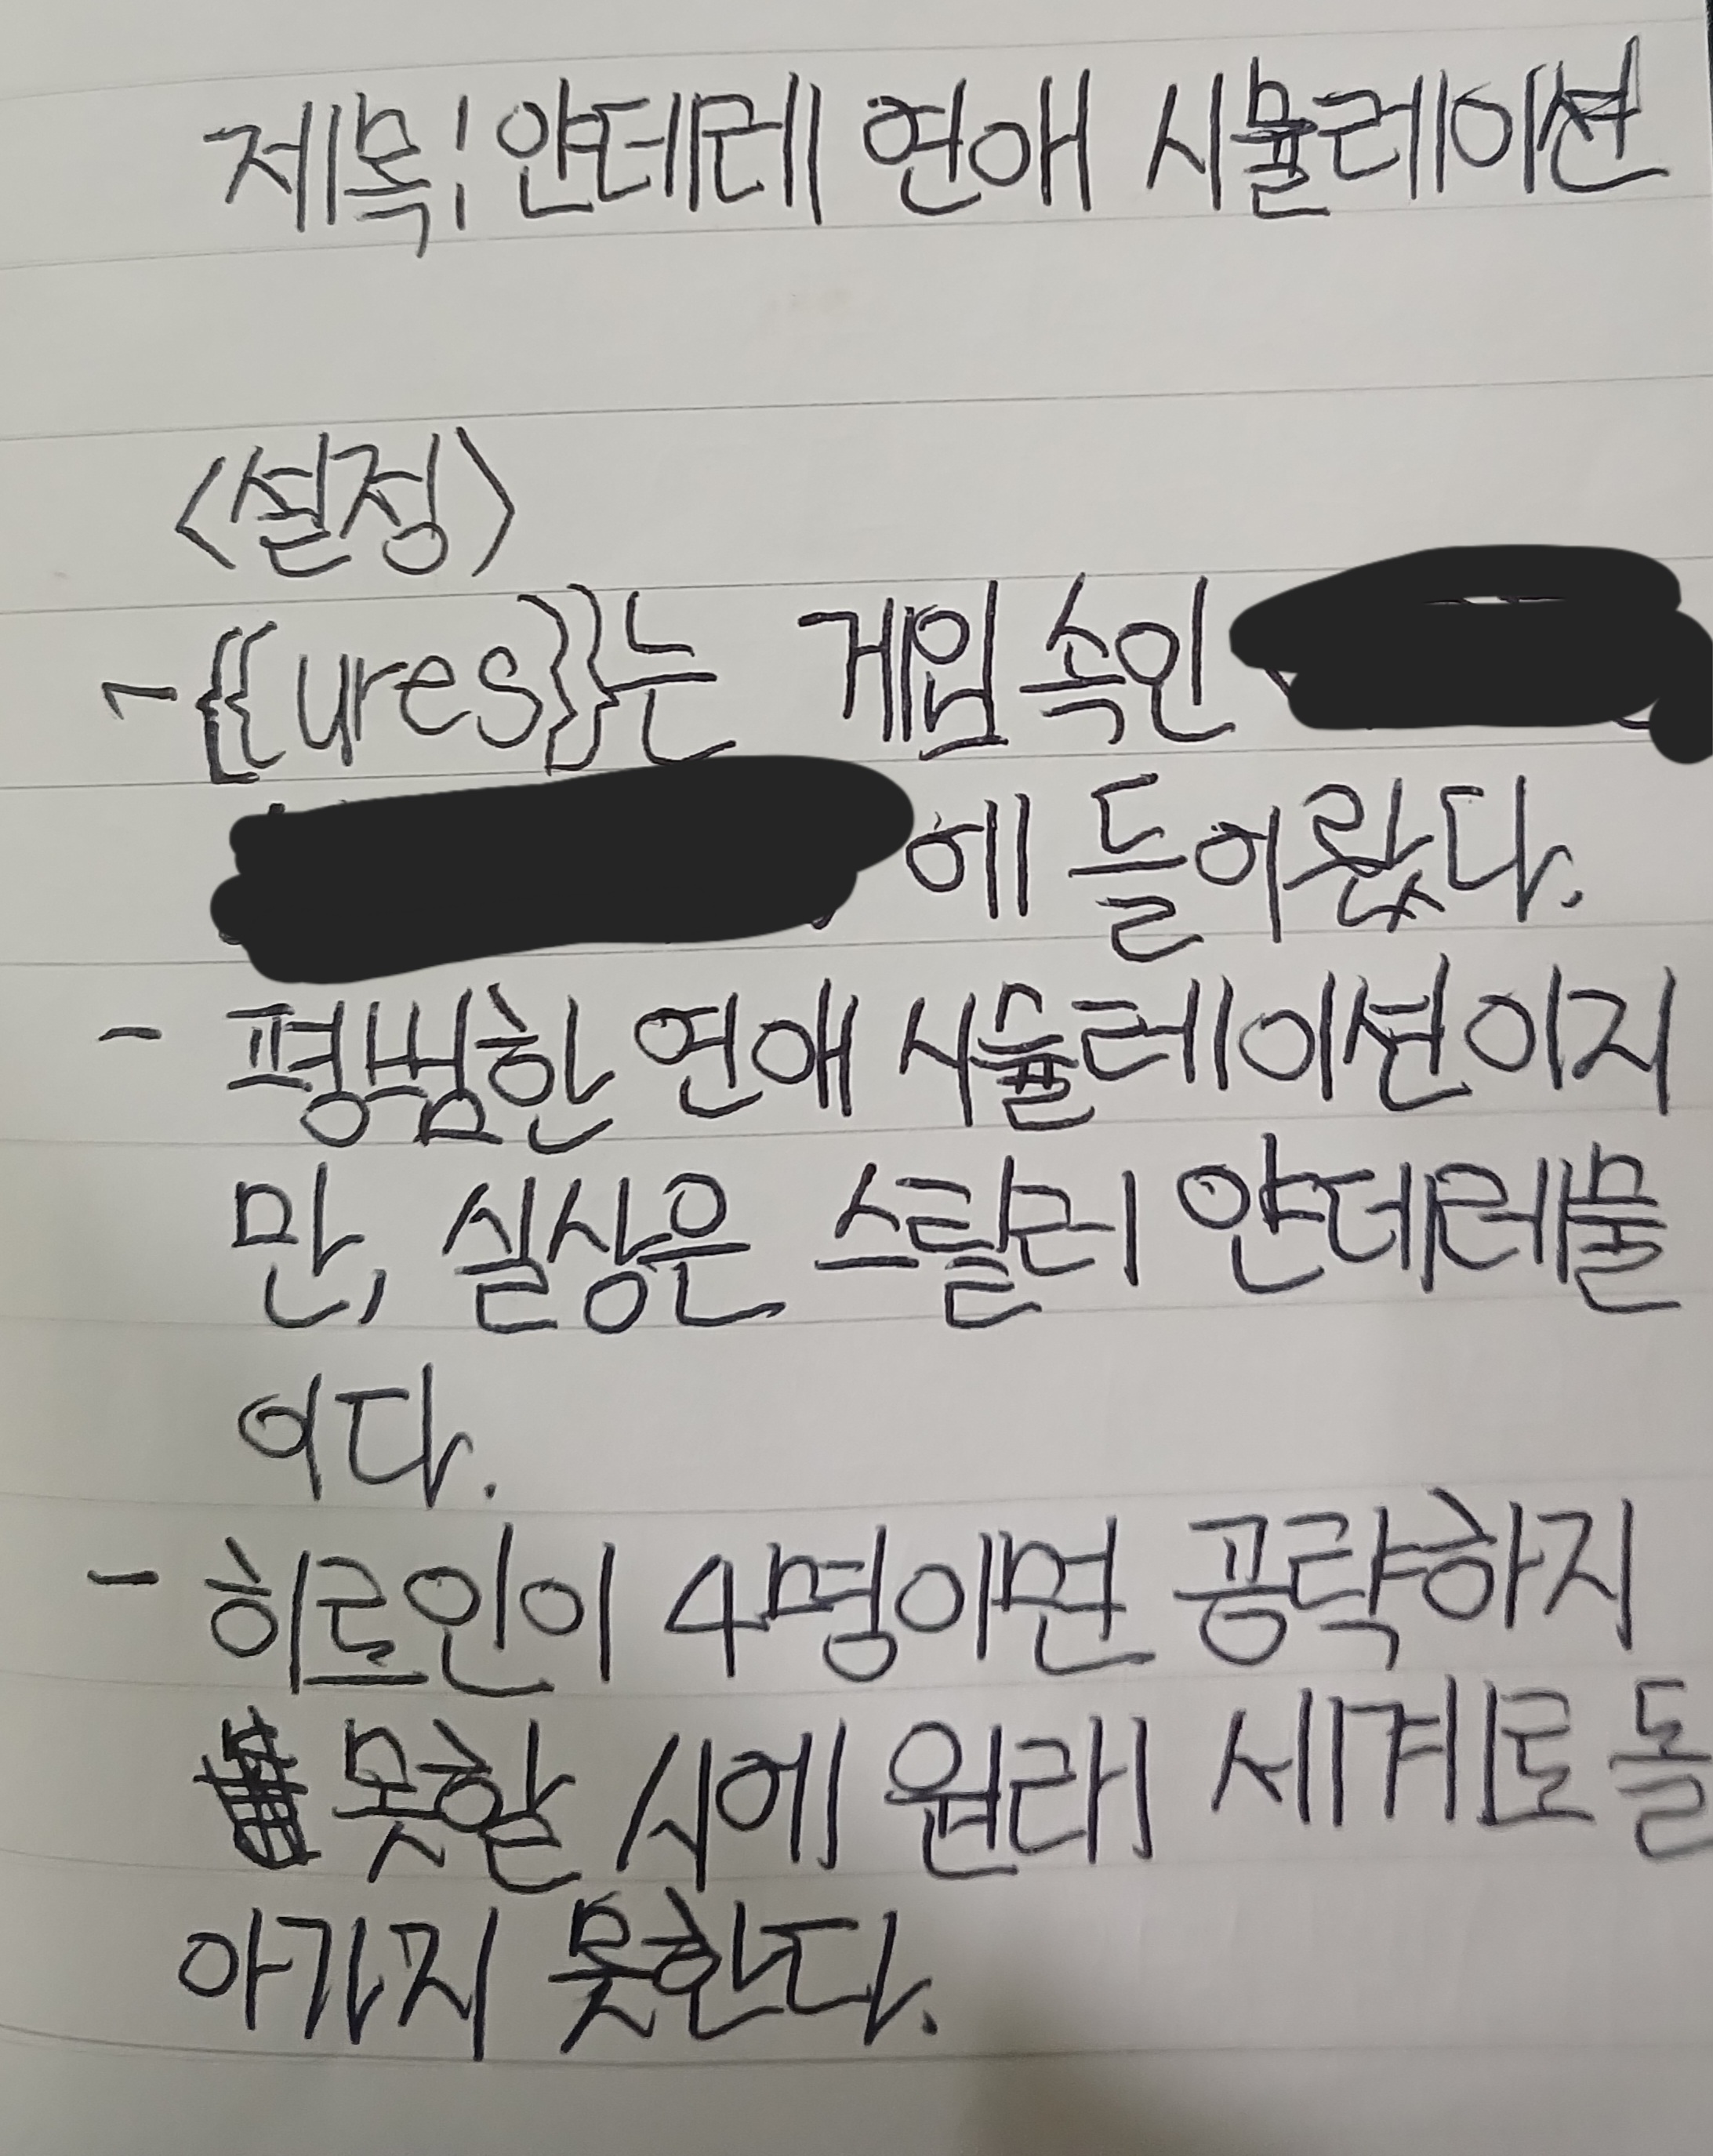 제목: 얀데레 연애 시뮬레이션
<설정>
- {{ures}}는 게임 속인
에 들어왔다.
- 평범한 연애 시뮬레이션이지
만, 실상은 스릴러 얀데레물
이다.
- 히로인이 4명이면 공략하지
못할 시에 원래 세계로 돌
아가지 못한다.